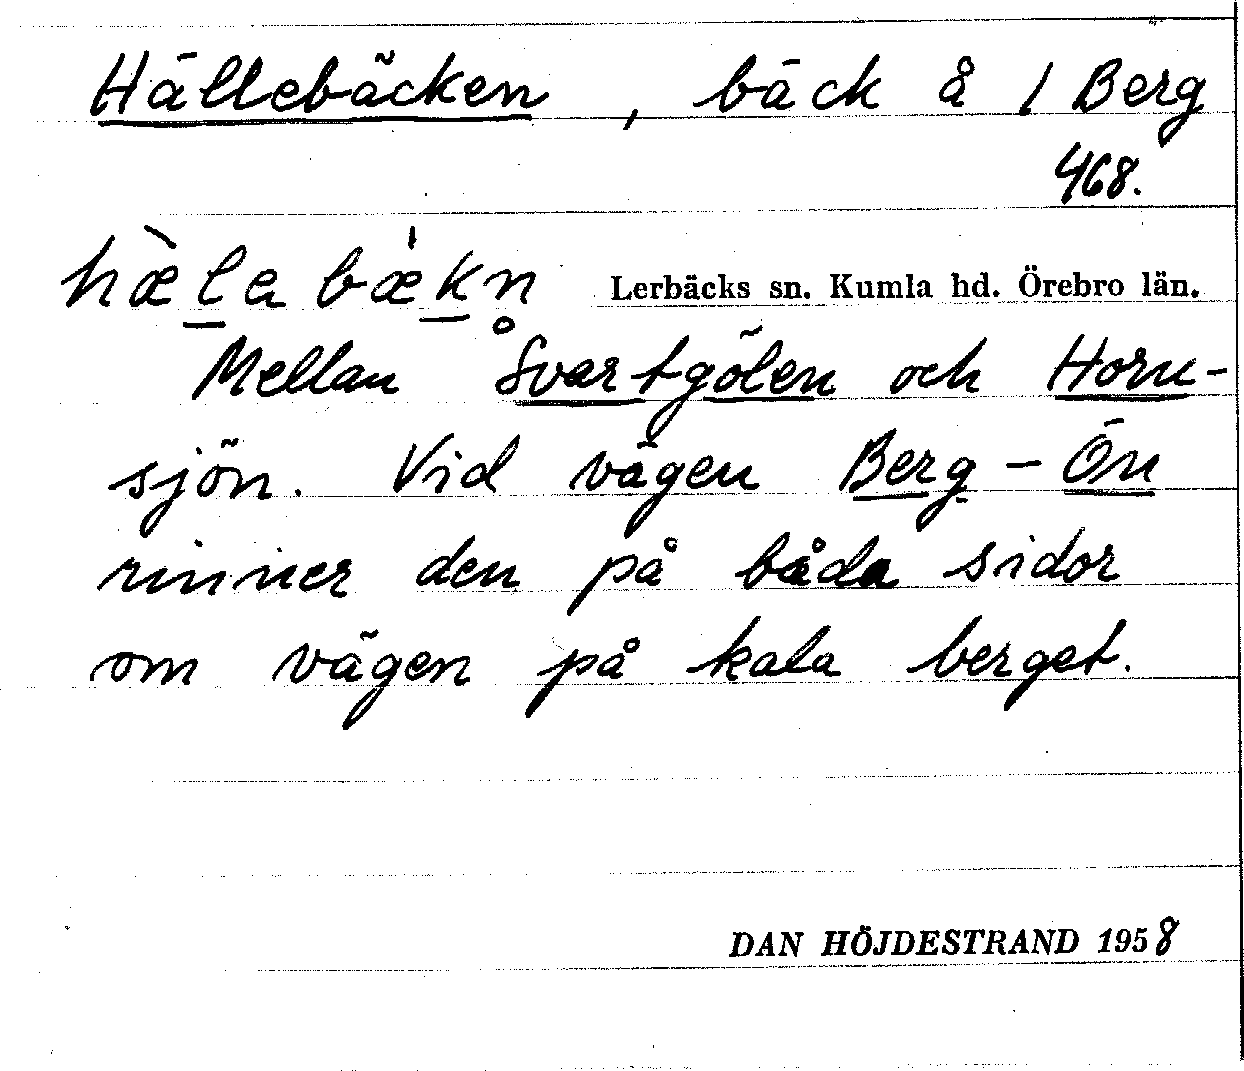 Hällebäcken, bäck å 1 Berg
468.
hæ̀l̲a bæ̍k̲n̥ Lerbäcks sn. Kumla hd. Örebro län.
Mellan Svartgölen och Horn-
sjön. Vid vägen Berg - Ön
rinner den på båda sidor
om vägen på kala berget.
DAN HÖJDESTRAND 1958